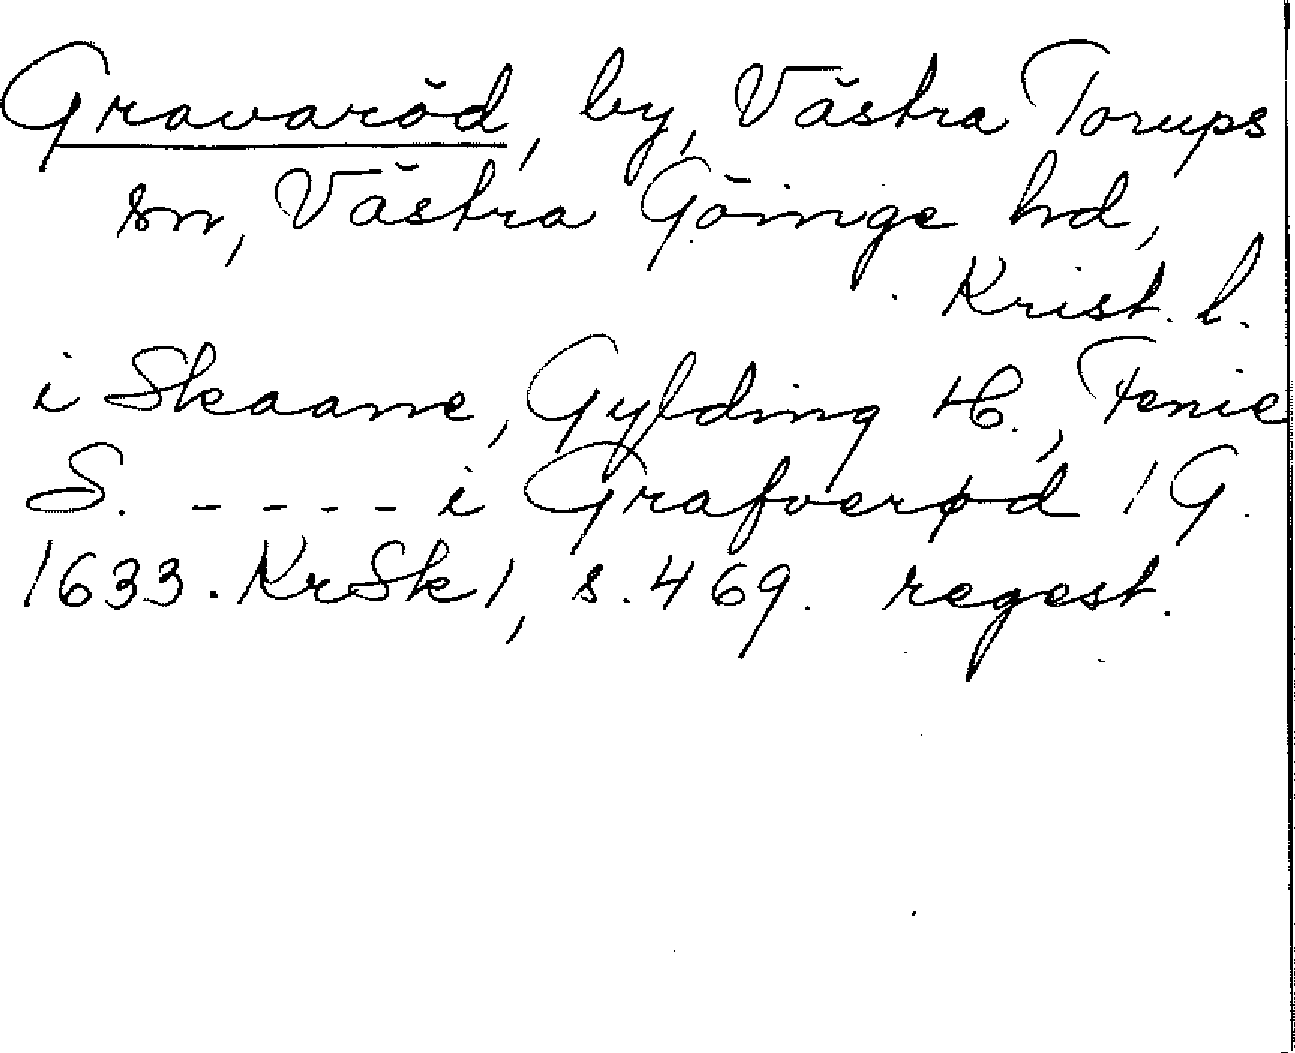 Gravaröd, by, Västra Torups
sn, Västra Göinge hd,
Krist. l.
i Skaane, Gylding H., Fenie
S. - - - - i Grafverød 1 G.
1633. KrSk1, s. 469. regest.